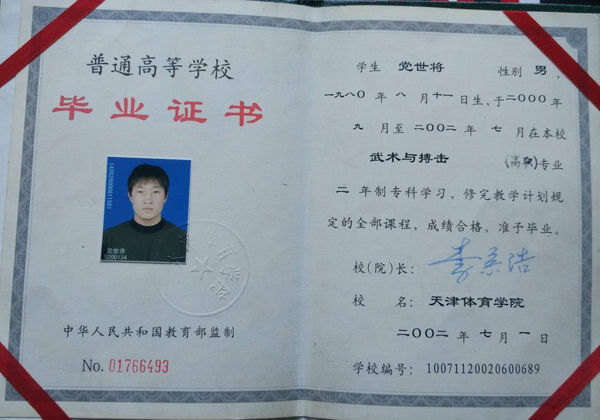 普通高等学校
毕业证书
党世将
1200134
中华人民共和国教育部监制
No. 01766493
学生 党世将 性别 男,
一九八〇年八月十一日生,于二〇〇〇年
九月至二〇〇二年七月在本校
武术与搏击 (高职)专业
二年制专科学习,修完教学计划规
定的全部课程,成绩合格,准予毕业。
校(院)长:
校名: 天津体育学院
二〇〇二年七月一日
学校编号: 10071120020600689